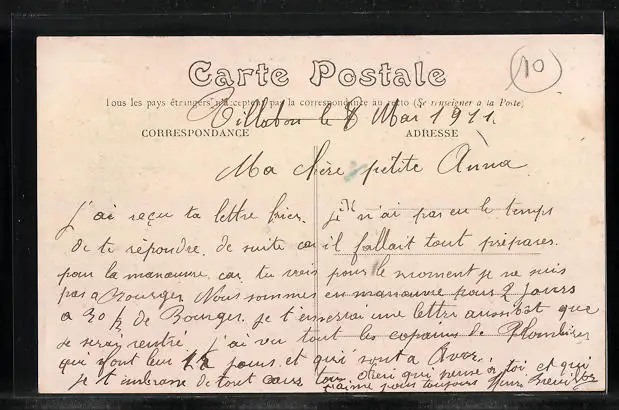 Carte Postale
10
Tous les pays étrangers n'acceptent pas la correspondance au recto (Se renseigner à la Poste)
Villabon le 8 Mai 1911.
CORRESPONDANCE
ADRESSE
Ma chère petite Anna
M
j'ai reçu ta lettre hier. je n'ai pas eu le temps
de te répondre de suite car il fallait tout préparer
pour la manœuvre car tu vois pour le moment je ne suis
pas a Bourges. Nous sommes en manœuvre pour 2 jours
a 20 K de Bourges. je t'enverrai une lettre aussitôt que
je serai rentré. j'ai vu tout les copains de Plombières
qui font leur jours et qui sont a Avor.
je t'embrasse de tout cœur ton qui pense a toi et qui
t'aime pour toujours